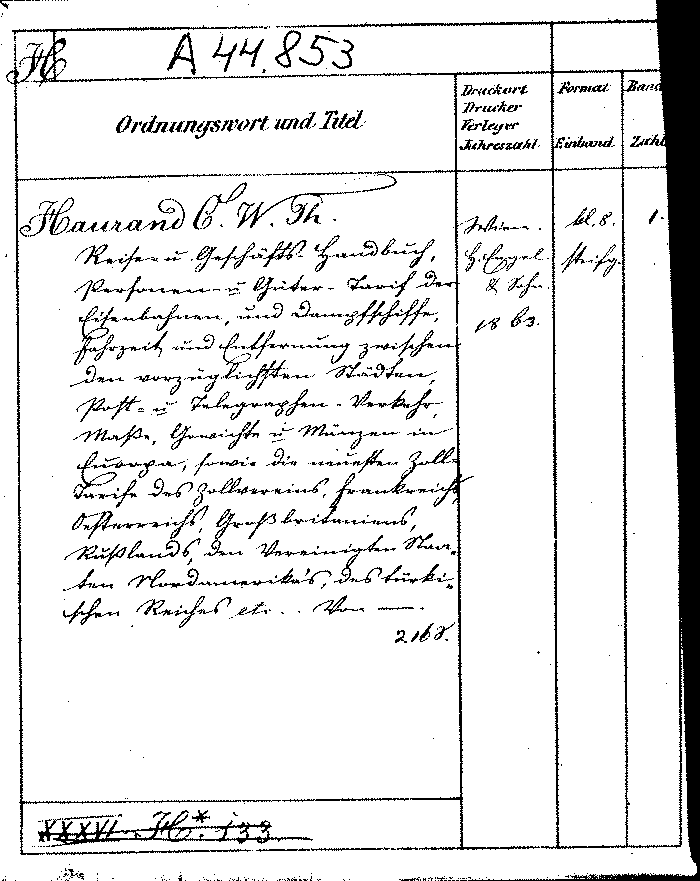 H
A 44.853
Ordnungswort und Titel
Druckort
Drucker
Verleger
Jahreszahl
Format
Einband
Band
Zahl
Haurand C. W. Th.
Reise- u Geschäfts-Handbuch,
Personen- u Güter-Tarif der
Eisenbahnen, und Dampfschiffe,
Fahrzeit und Entfernung zwischen
den vorzüglichsten Städten,
Post- u Telegraphen-Verkehr,
Maße, Gewichte u Münzen in
Europa, sowie die neuesten Zoll-
Tarife des Zollvereins, Frankreichs
Oesterreichs, Großbritaniens,
Rußlands, den Vereinigten Staa-
ten Nordamerika's, des türki-
schen Reiches etc .. Von —.
216 S.
Wien.
H. Engel
& Sohn.
1863.
kl. 8.
steifg.
1.
XXXVI. H* 133